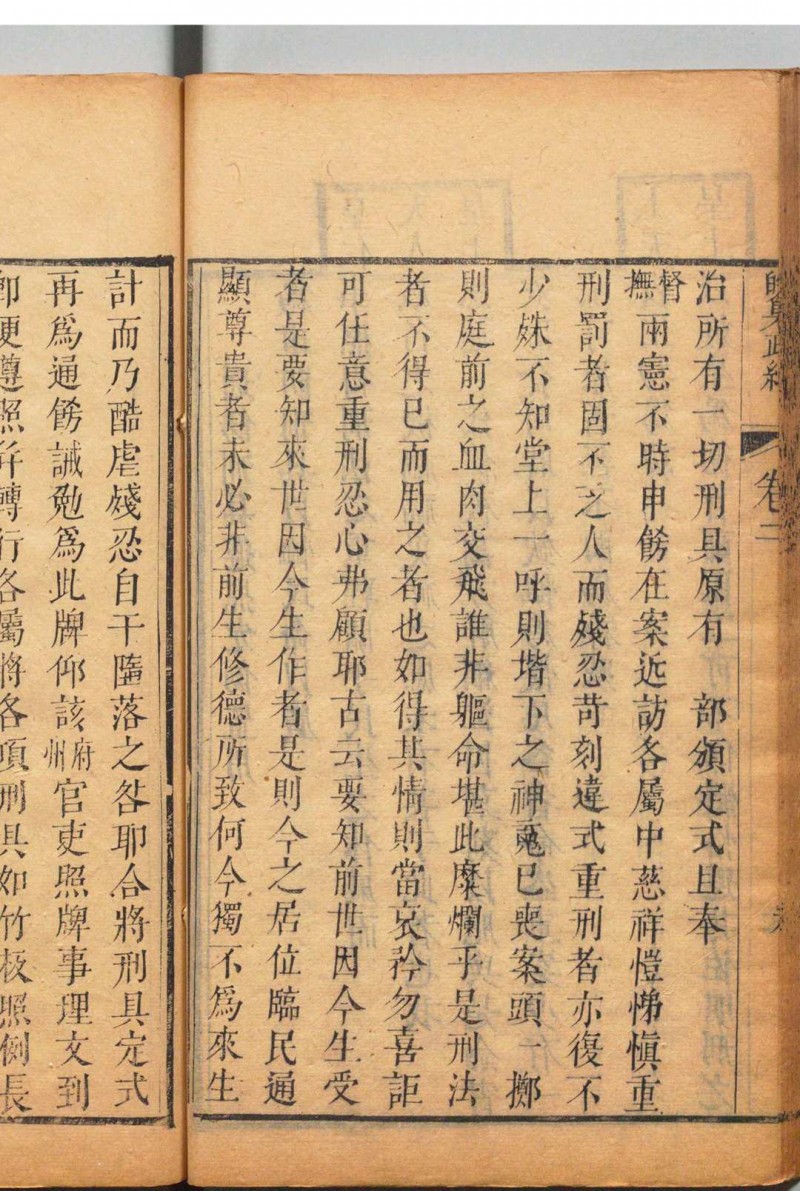 卷二
治所有一切刑具原有　部頒定式且奉
督撫兩憲不時申飭在案近訪各屬中慈祥愷悌慎重
刑罰者固不乏人而殘忍苛刻違式重刑者亦復不
少姝不知堂上一呼則堦下之神䰟已喪案頭一擲
則庭前之血肉交飛誰非軀命堪此糜爛乎是刑法
者不得已而用之者也如得其情則當哀矜勿喜詎
可任意重刑忍心弗顧耶古云要知前世因今生受
者是要知來世因今生作者是則今之居位臨民通
顯尊貴者未必非前生修德所致何今獨不爲來生
計而乃酷虐殘忍自干墮落之咎耶合將刑具定式
再爲通飭誡勉爲此牌仰該府州官吏照牌事理文到
卽便遵照幷轉行各屬將各項刑具如竹板照例長